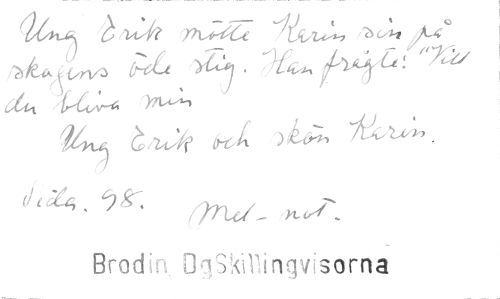 Ung Erik mötte Karin sin på
skogens öde stig. Han frågte: "Vill
du bliva min
Ung Erik och skön Karin.
Sida. 98.
Mel-not.
Brodin DgSkillingvisorna